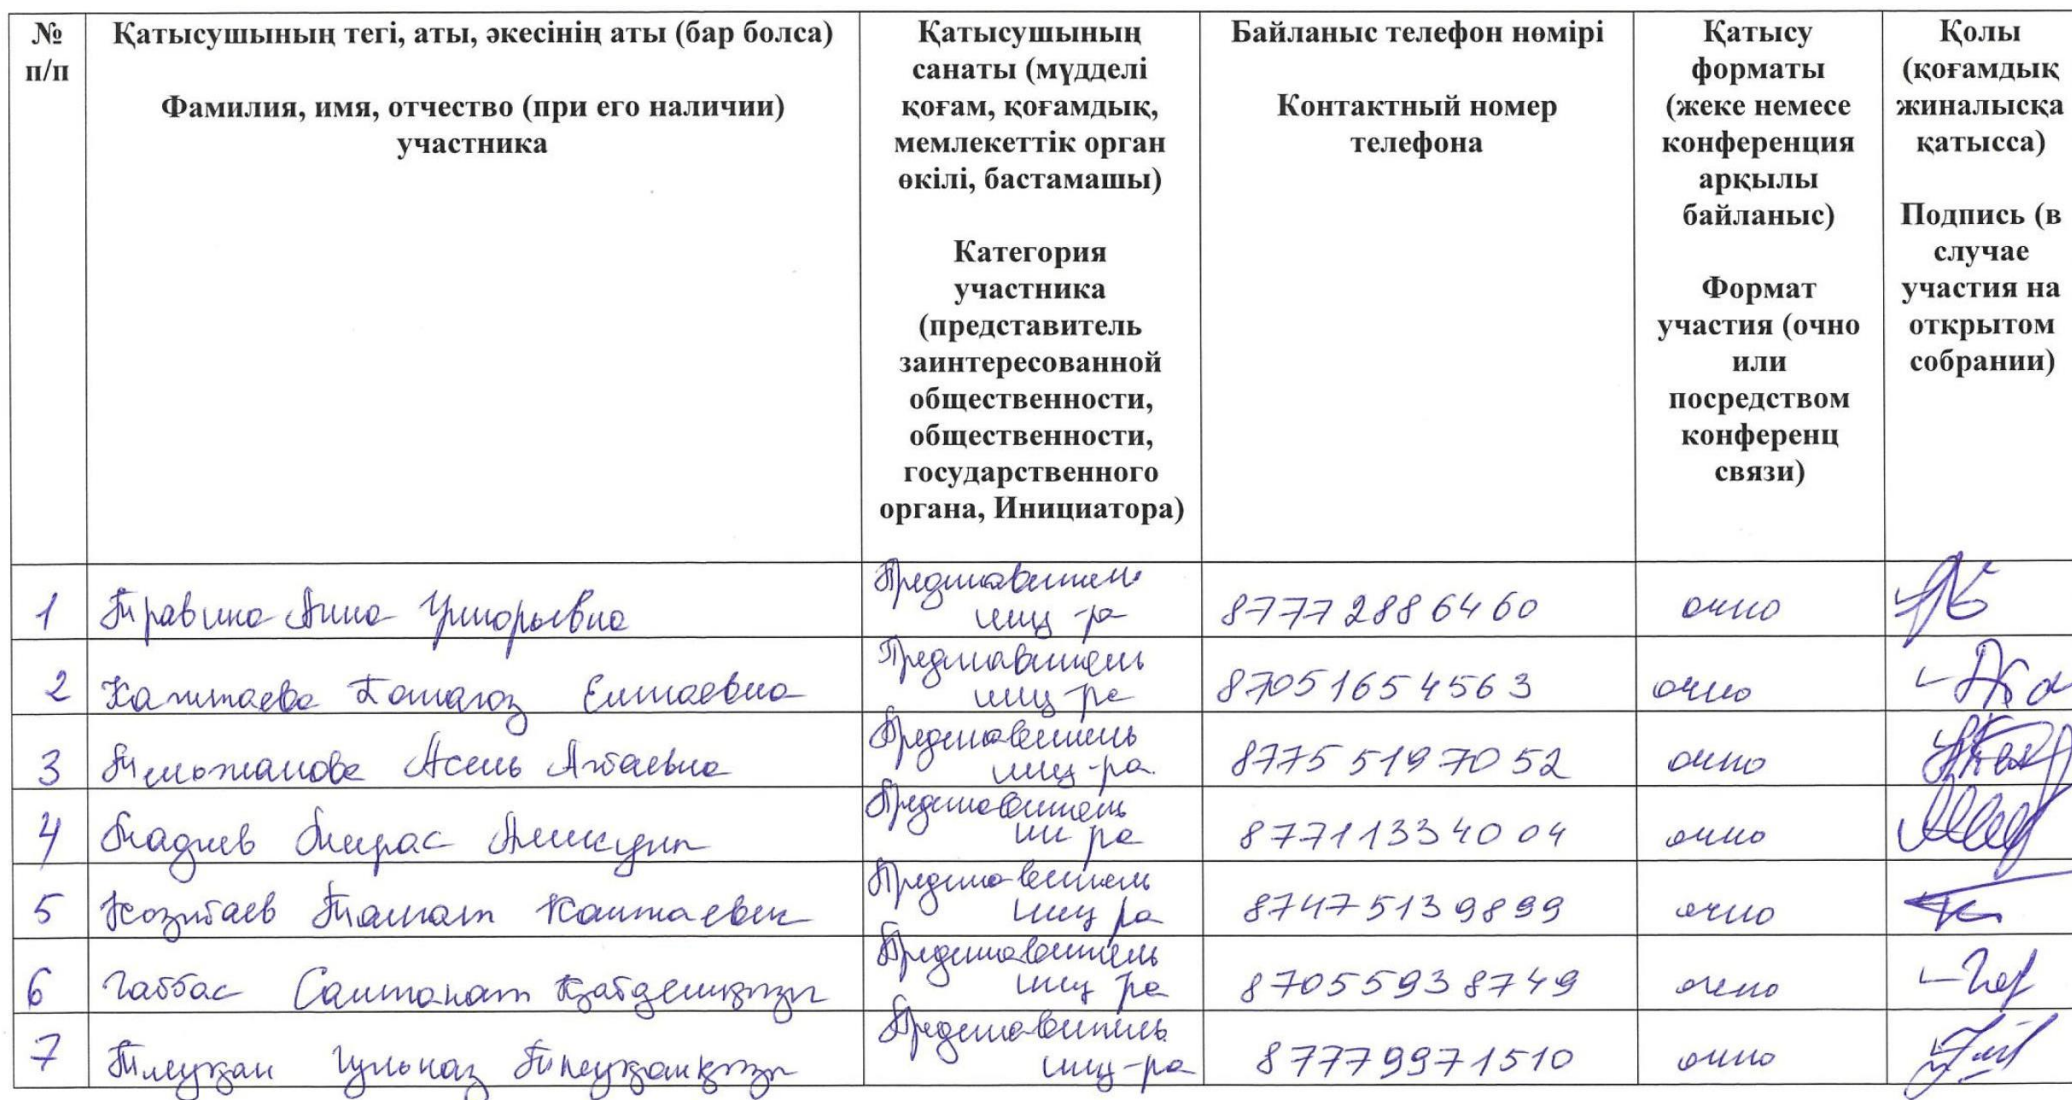 № п/п
Қатысушының тегі, аты, әкесінің аты (бар болса)
Фамилия, имя, отчество (при его наличии)
участника
Қатысушының
санаты (мүдделі
қоғам, қоғамдық,
мемлекеттік орган
өкілі, бастамашы)
Категория
участника
(представитель
заинтересованной
общественности,
общественности,
государственного
органа, Инициатора)
Байланыс телефон нөмірі
Контактный номер
телефона
Қатысу
форматы
(жеке немесе
конференция
арқылы
байланыс)
Формат
участия (очно
или
посредством
конференц
связи)
Қолы
(қоғамдық
жиналысқа
қатысса)
Подпись (в
случае
участия на
открытом
собрании)
1 Травина Анна Григорьевна Представитель
иниц-ра 87772886460 очно
2 Капитаева Ботагоз Представитель
иниц-ра 87051654563 очно
3 Асель Представитель
иниц-ра 87755197052 очно
4 Мадиев Мирас Представитель
ин ра 87711334004 очно
5 Козыбаев Талгат Представитель
иниц ра 87475139899 очно
6 Габбас Салтанат Представитель
иниц ра 87055938749 очно
7 Тлеужан Гульназ Тлеужанқызы Представитель
иниц-ра 87779971510 очно